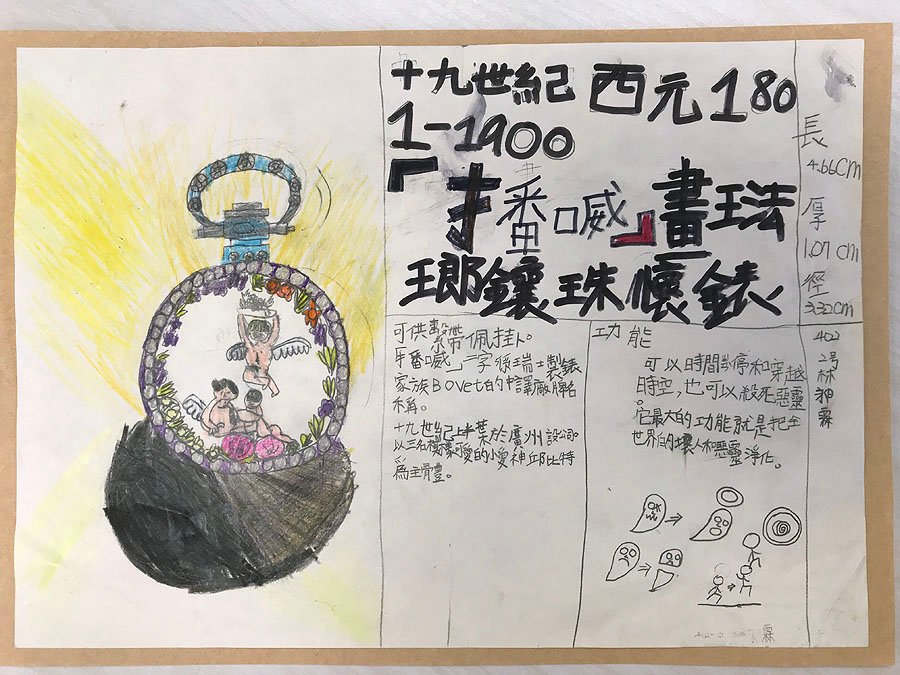 十九世紀 西元180
1-1900
『播喴』畫琺
瑯鑲珠懷錶
長
4.66cm
厚
1.07cm
徑
3.32cm
可供繫帶佩掛。
「播喴」二字係瑞士製錶
家族Bovet的中譯廠牌
稱。
十九世紀上半葉於廣州設公司。
以三名相擁愛的小愛神邱比特
為主體。
功能
可以時間暫停和穿越
時空,也可以殺死惡靈
。
它最大的功能就是把全
世界的壞人和惡靈淨化。
402
2號
林
霖